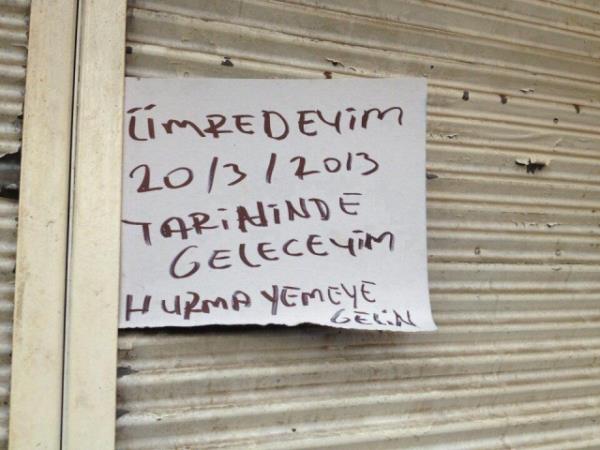 ÜMREDEYİM
20/3/2013
TARİHİNDE
GELECEYİM
HURMA YEMEYE
GELİN